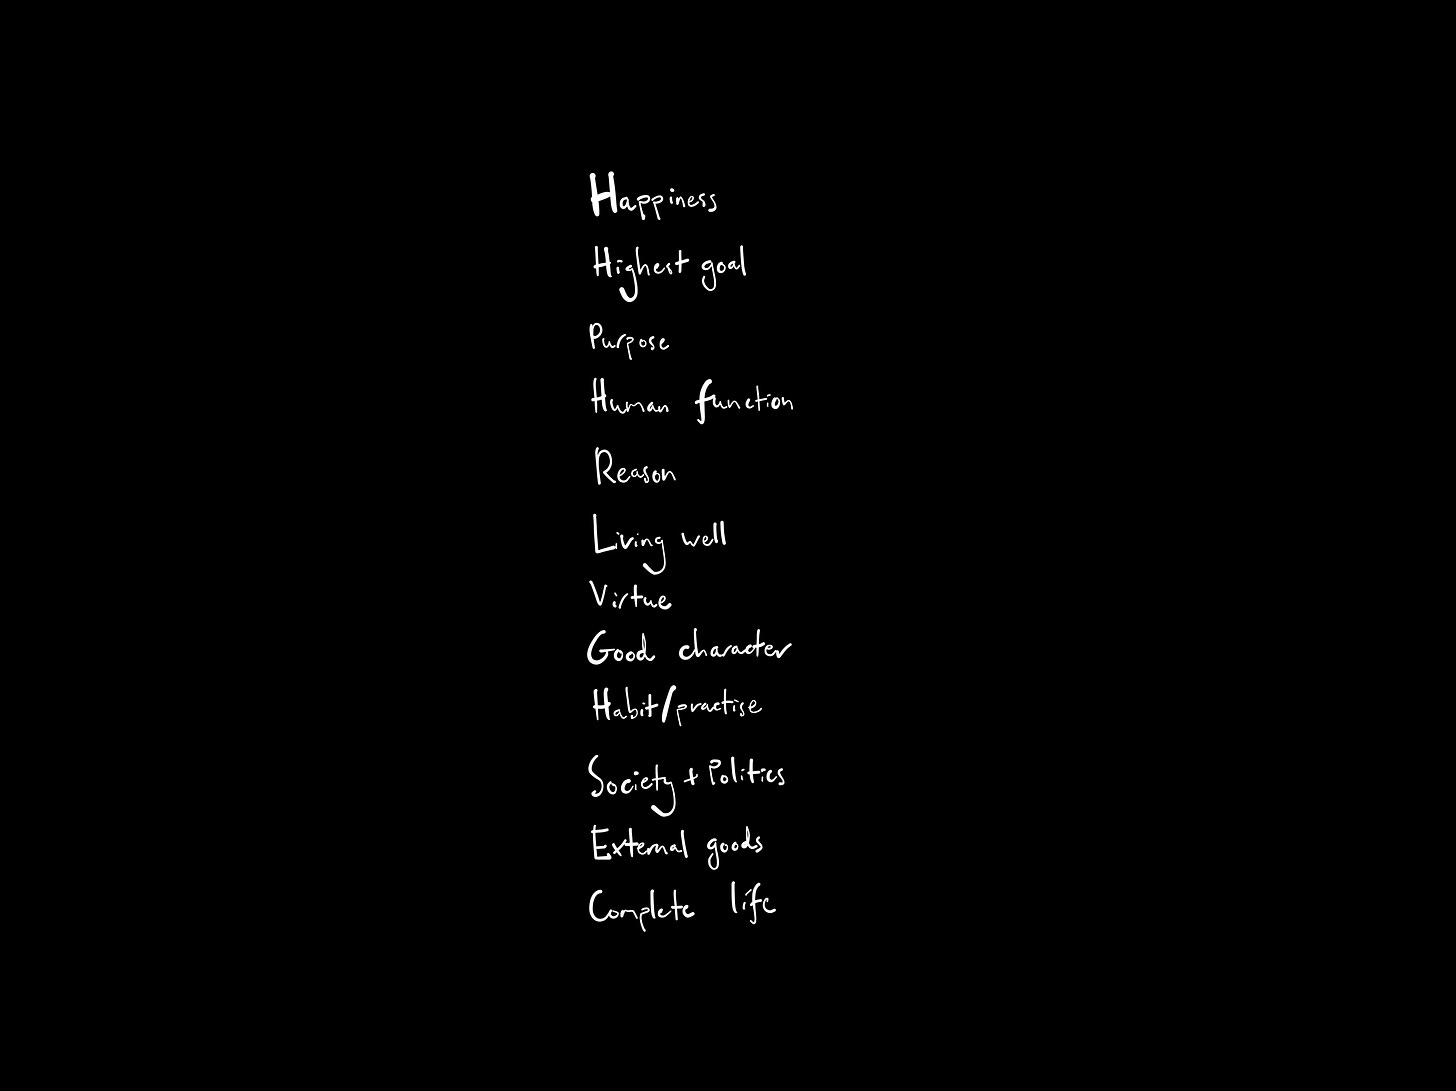 Happiness
Highest goal
Purpose
Human function
Reason
Living well
Virtue
Good character
Habit/practise
Society + Politics
External goods
Complete life